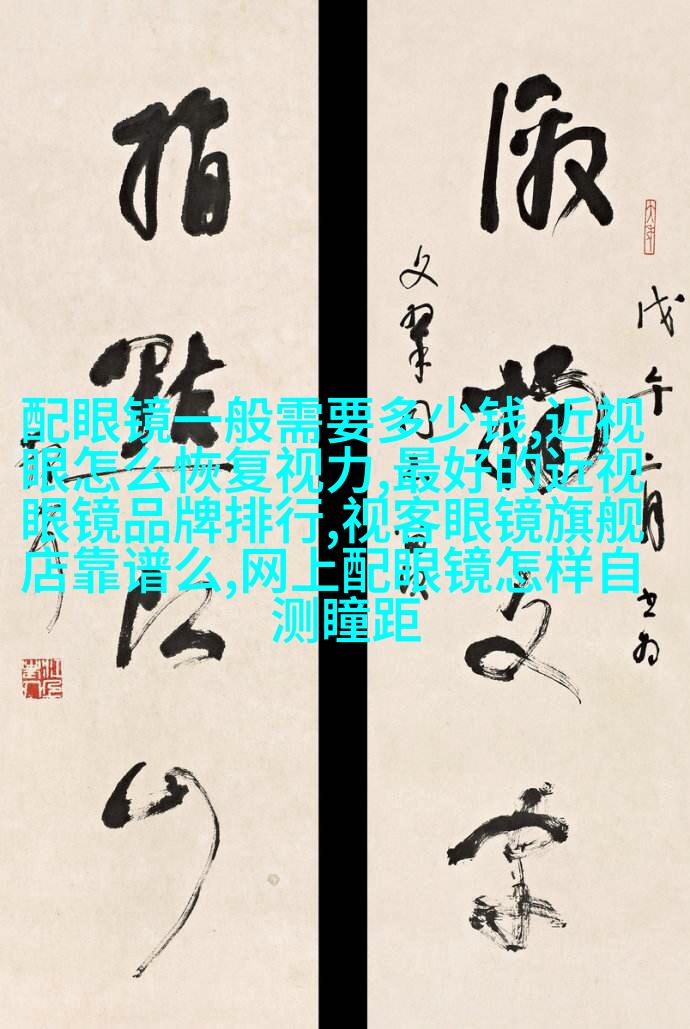 激揚文字
指點江山
配眼镜一般需要多少钱,近视
眼怎么恢复视力,最好的近视
眼镜品牌排行,视客眼镜旗舰
店靠谱么,网上配眼镜怎样自
测瞳距